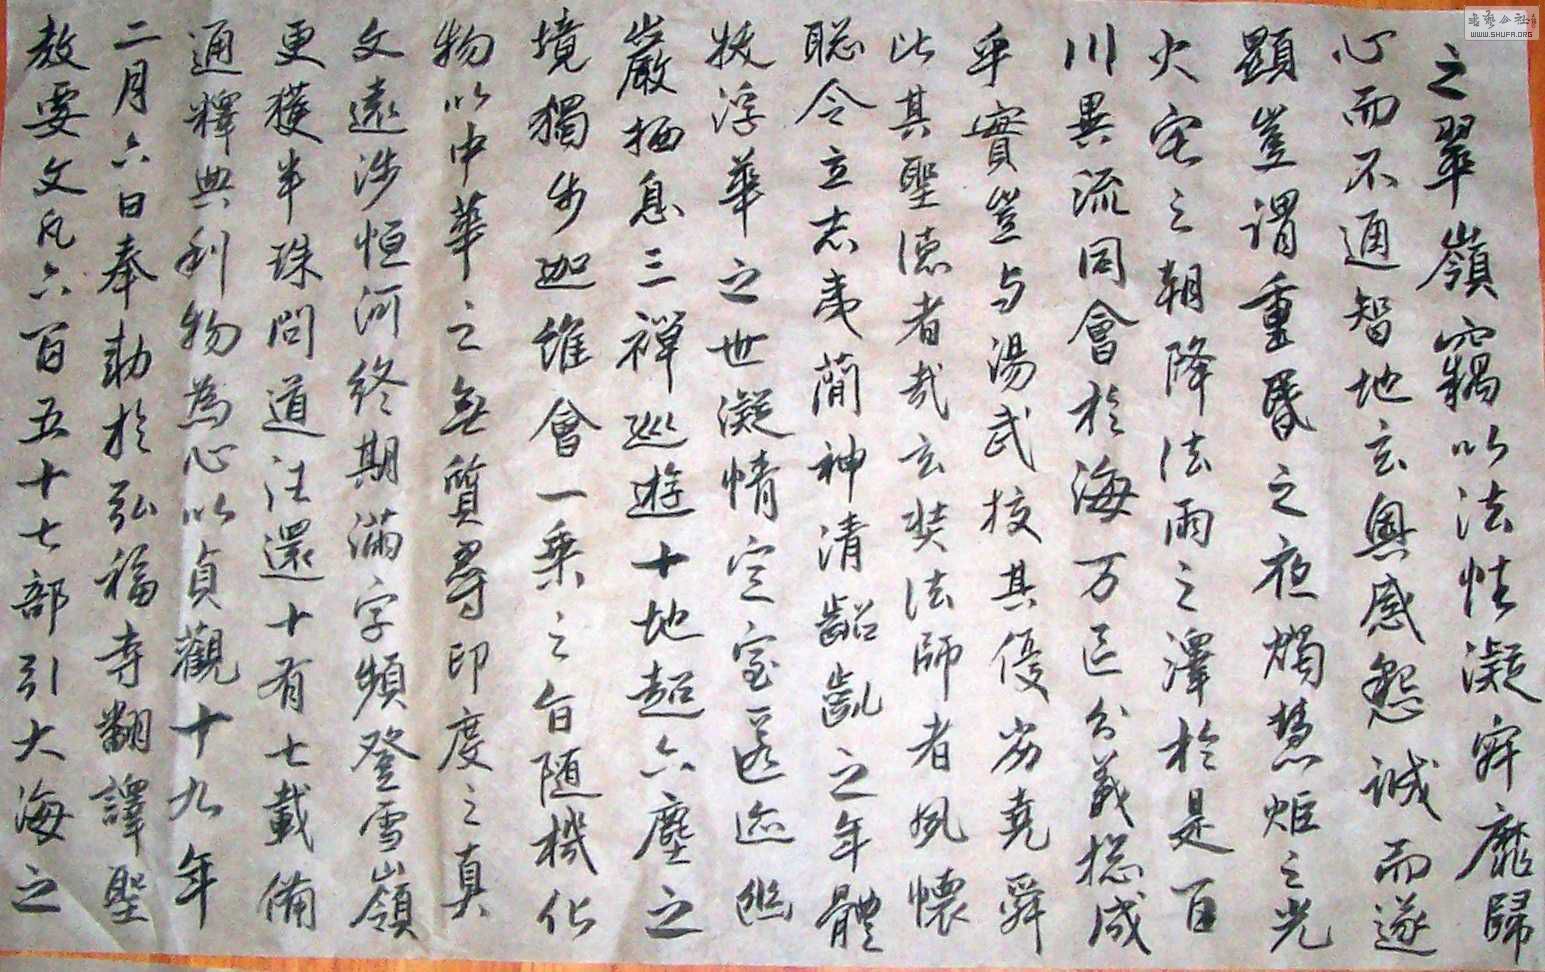 之翠嶺窮以法性凝寂靡歸
心而不通智地玄奧感懇誠而遂
顯豈謂重昏之夜燭慧炬之光
火宅之朝降法雨之澤於是百
川異流同會於海万區分義揔成
乎實豈与湯武挍其優劣堯舜
比其聖德者哉玄奘法師者夙懷
聡令立志夷簡神清齠齓之年體
拔浮華之世凝情定室匿迹幽
巖栖息三禪巡遊十地超六塵之
境獨步迦維會一乘之旨隨機化
物以中華之無質尋印度之真
文遠涉恒河終期滿字頻登雪嶺
更獲半珠問道往還十有七載備
通釋典利物為心以貞觀十九年
二月六日奉勅於弘福寺翻譯聖
教要文凡六百五十七部引大海之
書藝公社
WWW.SHUFA.ORG